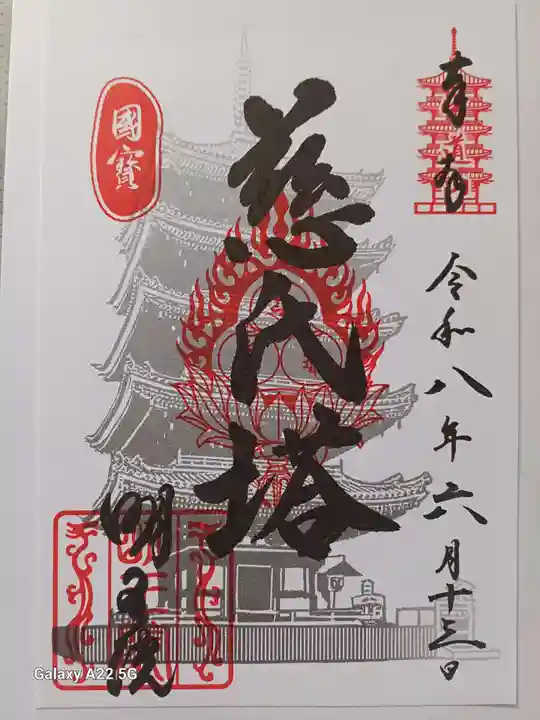 奉拝
令和八年六月十三日
慈氏塔
國寶
明王院
Galaxy A22 5G